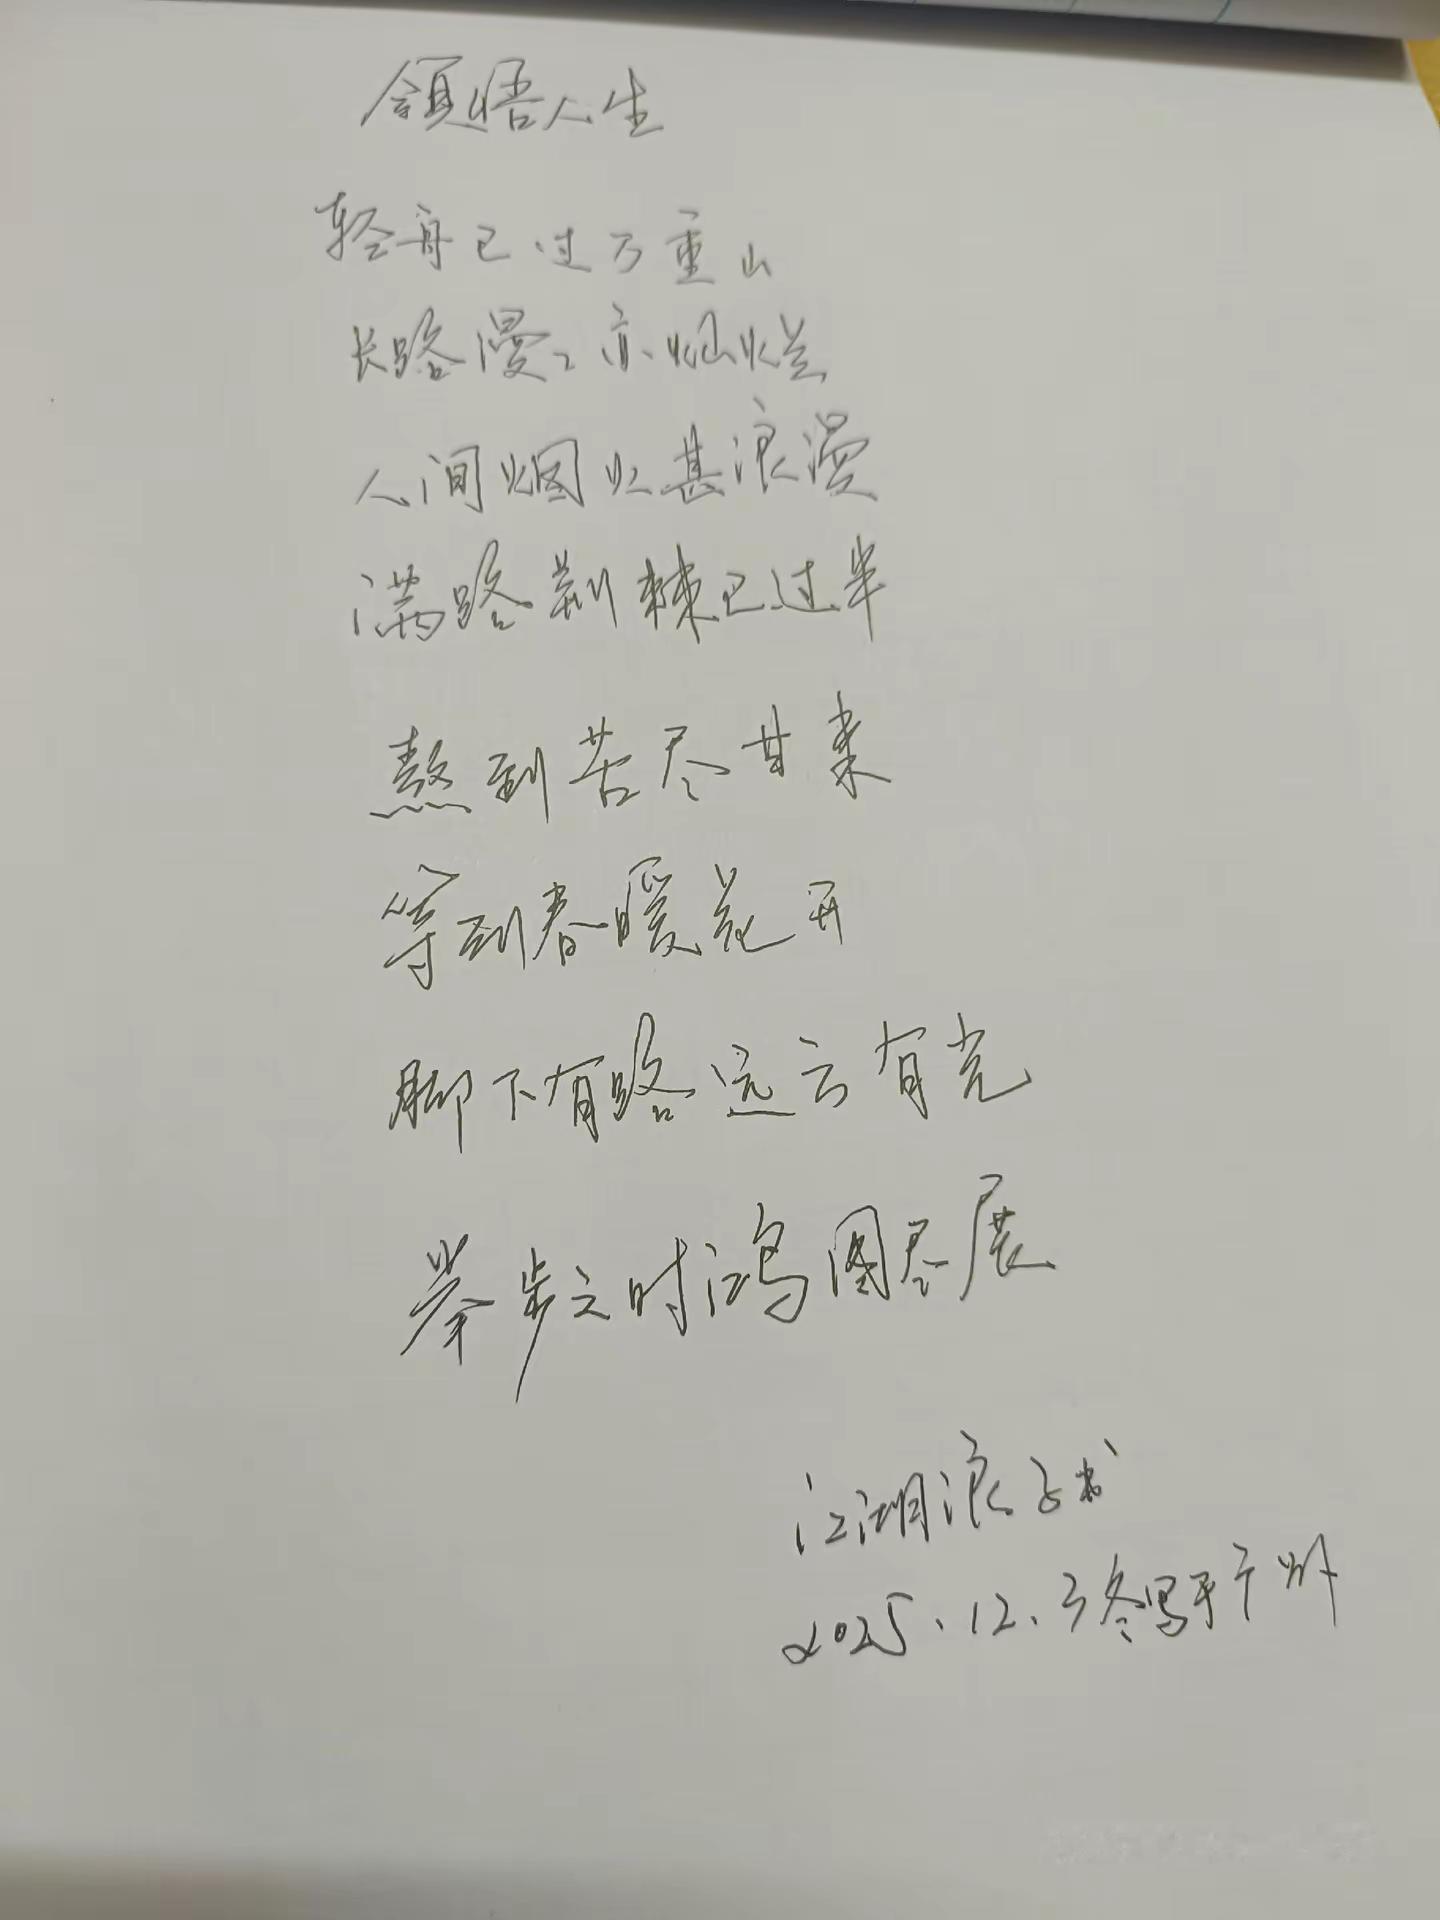 领悟人生
轻舟已过万重山
长路漫漫亦灿烂
人间烟火甚浪漫
满路荆棘已过半
熬到苦尽甘来
等到春暖花开
脚下有路远方有光
举步之时鸿图尽展
江湖浪子书
2025.12.3冬写于广州